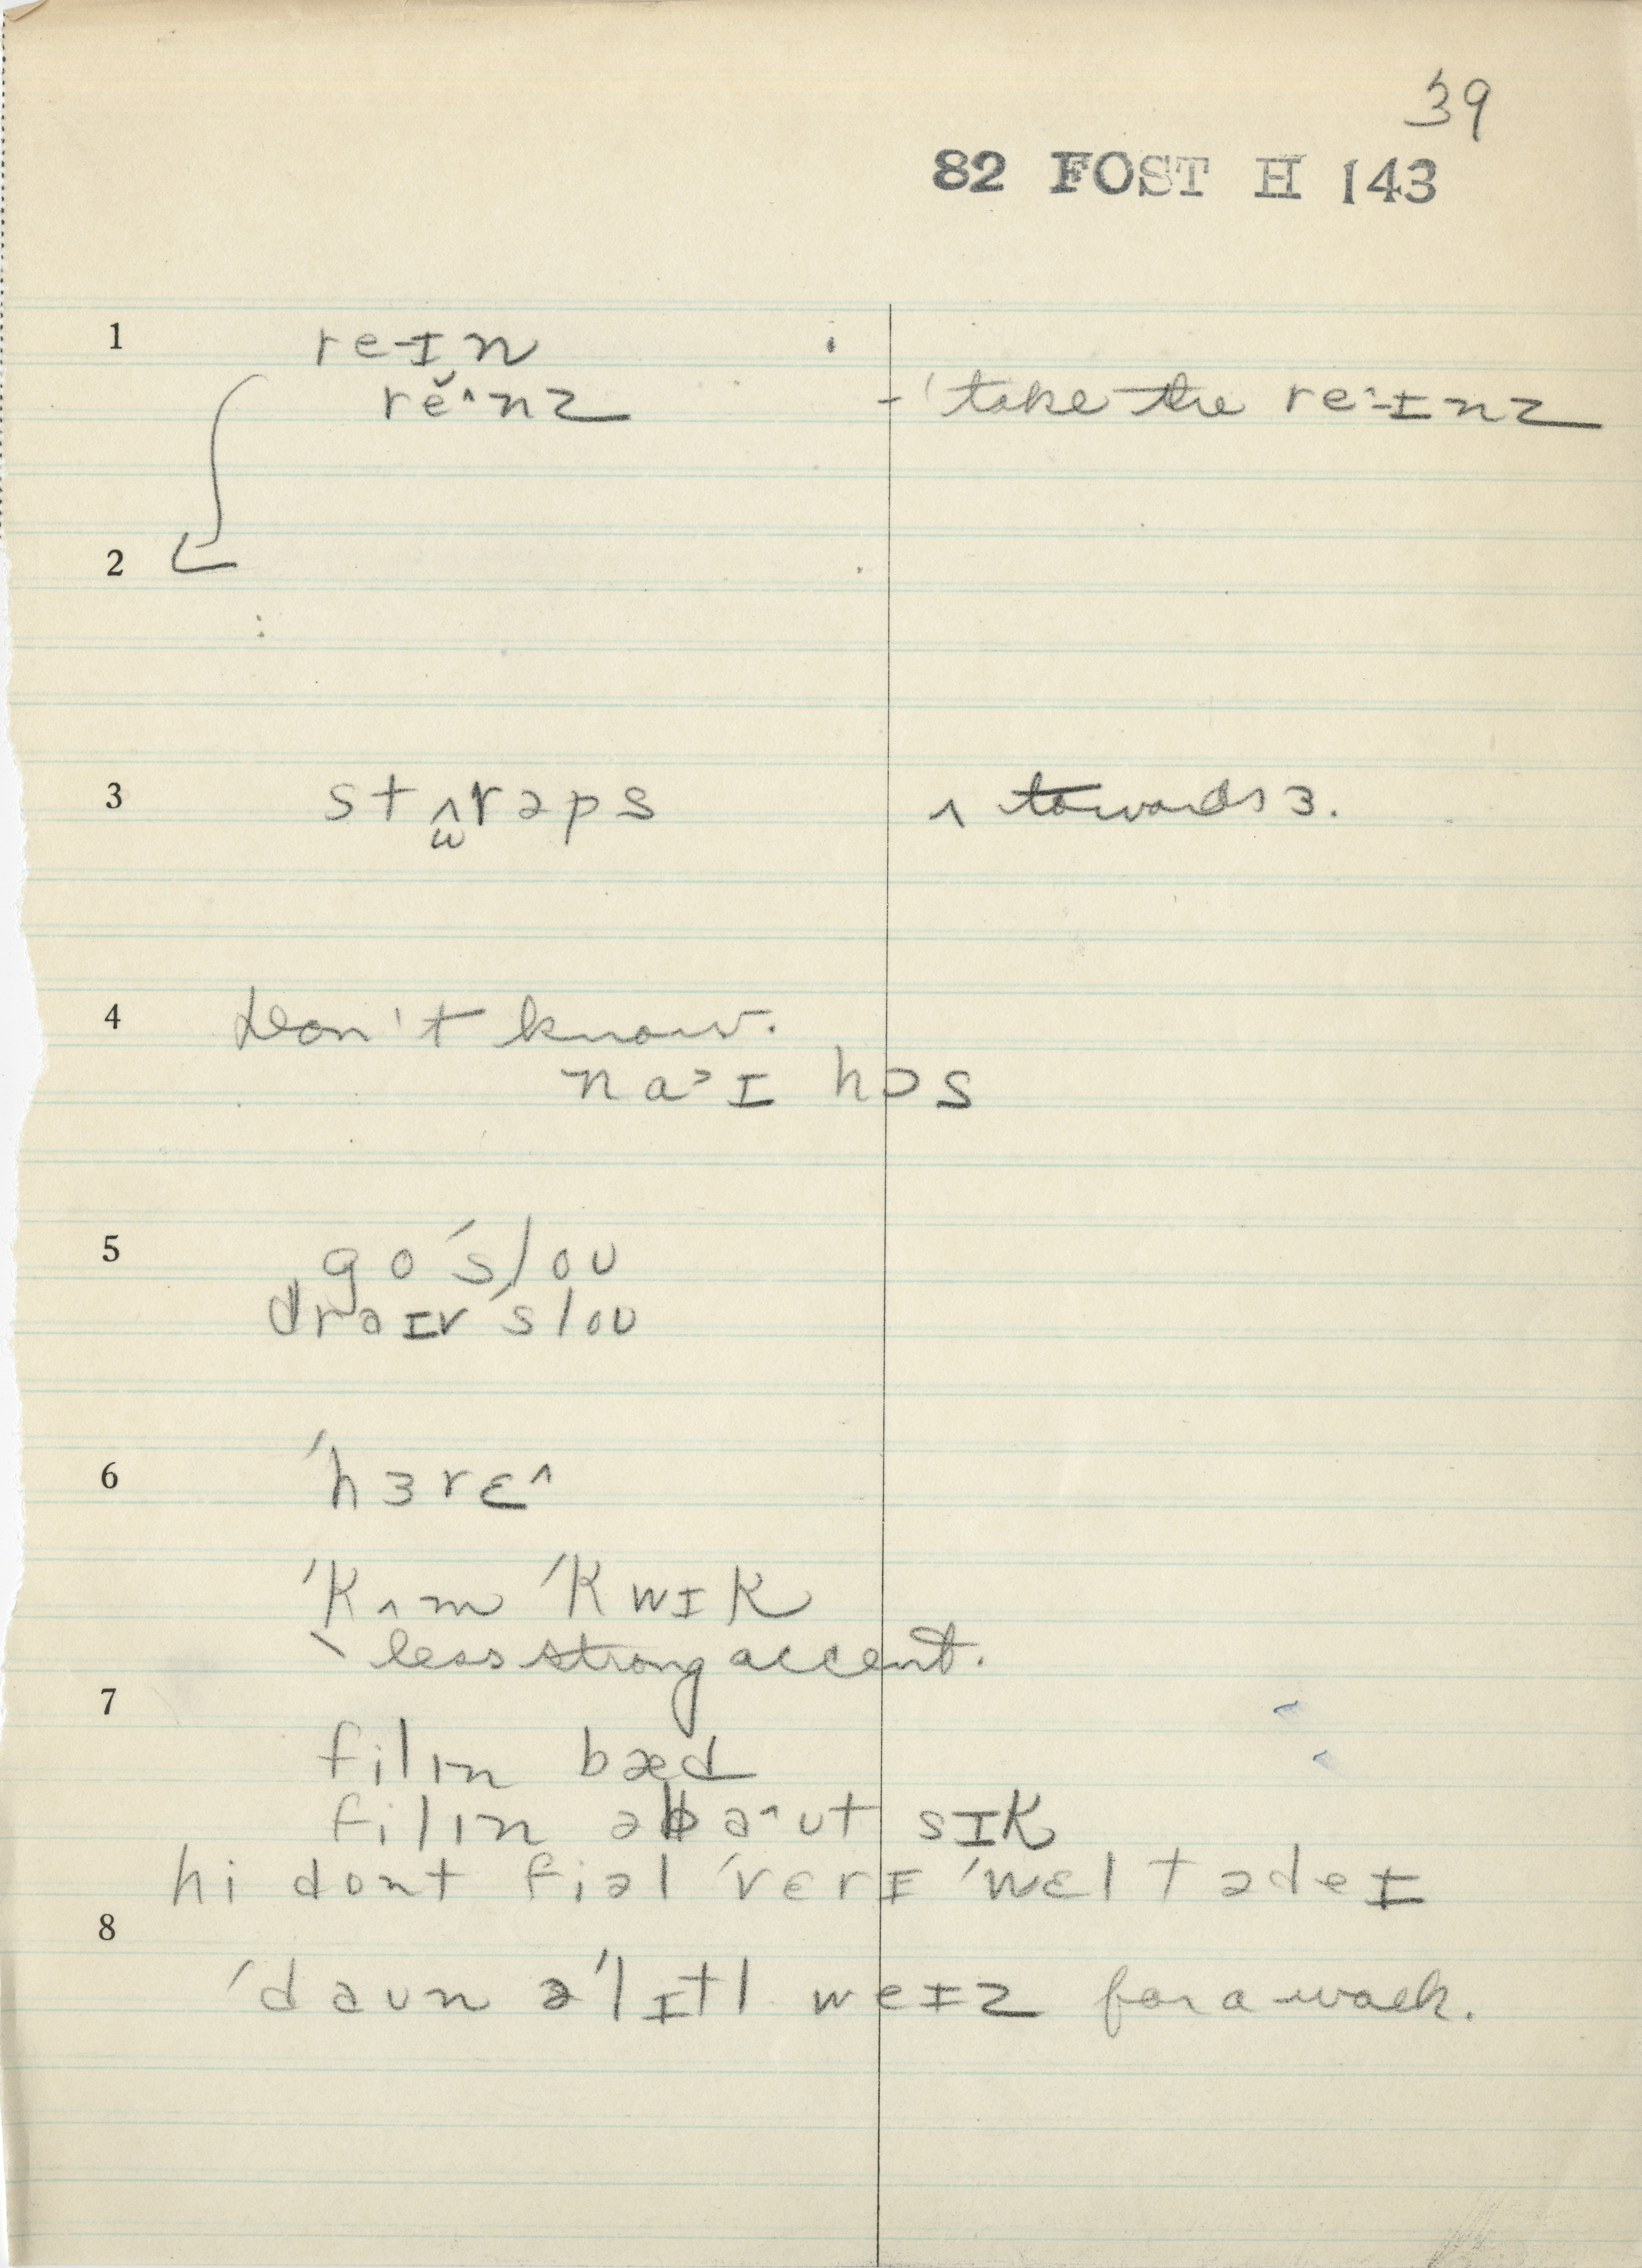 39
82 FOST H 143
1 re-ɪn
rĕ^nz - 'take the re^-ɪnz
2
3 stʌ̫rəps ʌ towards ɜ.
4 Don't know.
na>ɪ hɔs
5 go 'slou
draɪv 'slou
6 'hɜrɛ^
'kʌm 'kwɪk
\ less strong accent.
7
filɪn bæd
filɪn əba^ut sɪk
hi dont fiəl 'vɛrɪ 'wɛl tədeɪ
8
'daun ə'lɪtl weɪz for a walk.